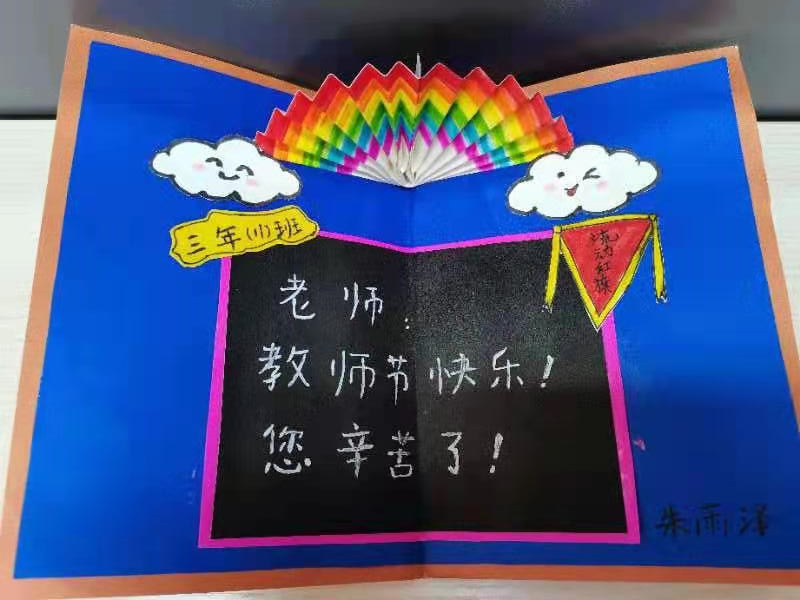 三年(11)班
流动红旗
老师:
教师节快乐!
您辛苦了!
朱雨泽